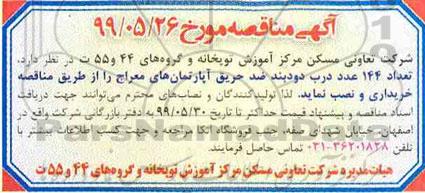 آگهی مناقصه مورخ ۹۹/۰۵/۲۶
شرکت تعاونی مسکن مرکز آموزش توپخانه و گروه‌های ۴۴ و ۵۵ ت در نظر دارد،
تعداد ۱۴۴ عدد درب دودبند ضد حریق آپارتمان‌های معراج را از طریق مناقصه
خریداری و نصب نماید. لذا تولیدکنندگان و نصاب‌های محترم می‌توانند جهت دریافت
اسناد مناقصه و پیشنهاد قیمت حداکثر تا تاریخ ۹۹/۰۵/۳۰ به دفتر بازرگانی شرکت واقع در
اصفهان، خیابان شهدای صفه، جنب فروشگاه اتکا مراجعه و جهت کسب اطلاعات بیشتر با
تلفن ۳۶۲۰۱۸۲۸-۰۳۱ تماس حاصل فرمایند.
هیات مدیره شرکت تعاونی مسکن مرکز آموزش توپخانه و گروه‌های ۴۴ و ۵۵ ت